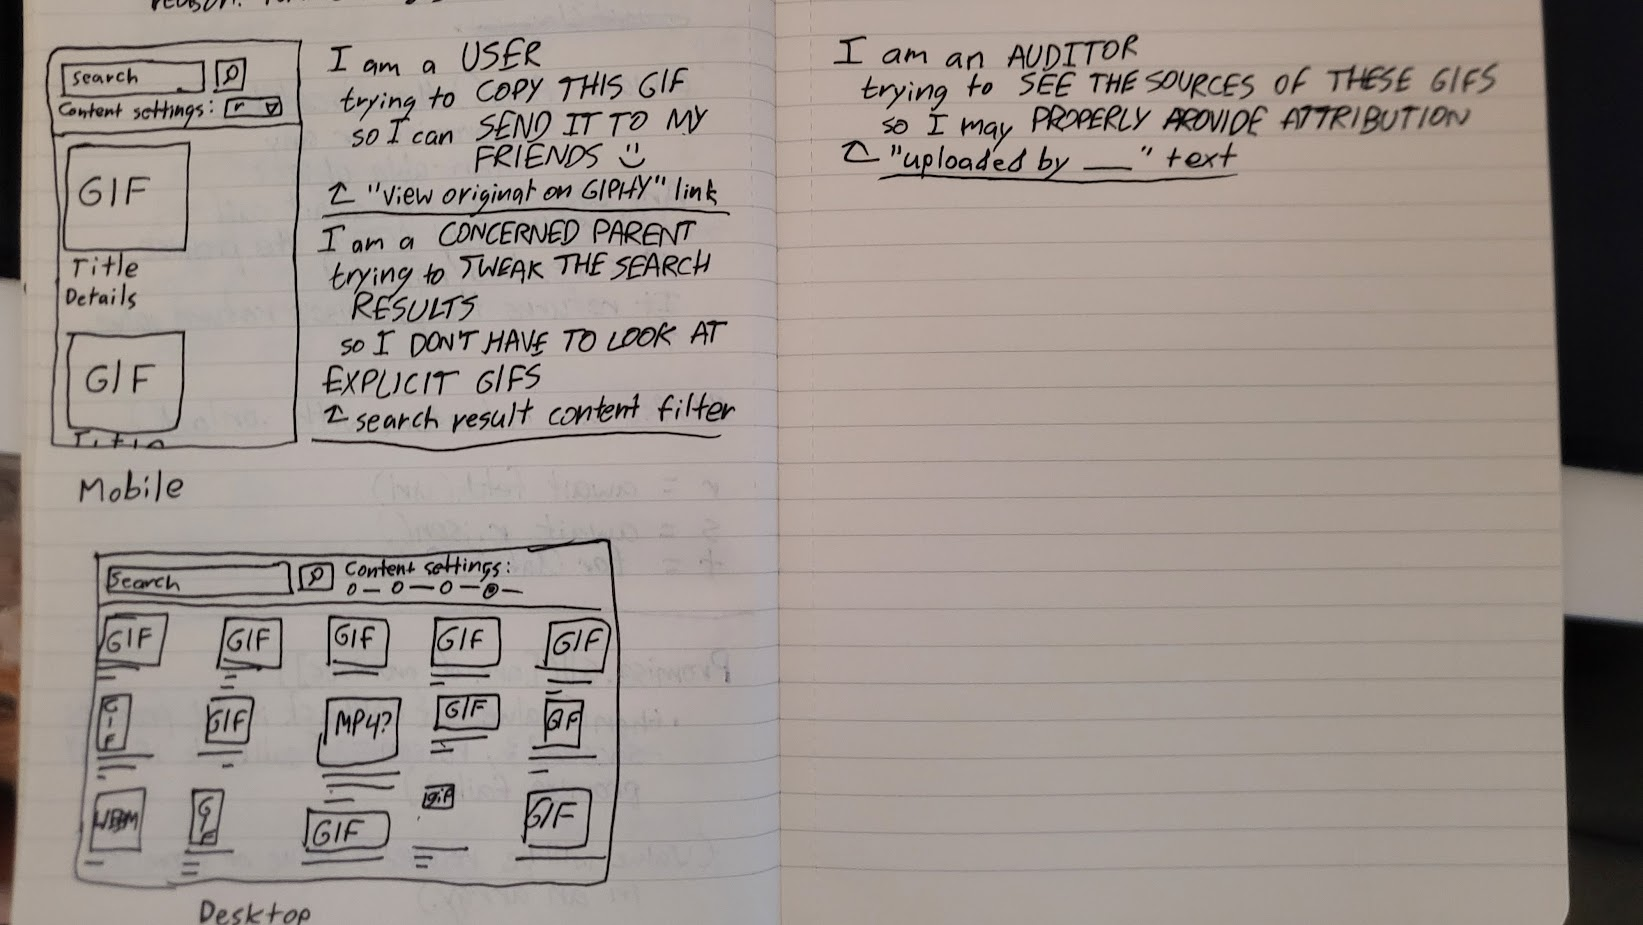 search
Content settings: r
GIF
Title
Details
GIF
Mobile
I am a USER
trying to COPY THIS GIF
so I can SEND IT TO MY
FRIENDS
"view original on GIPHY" link
I am a CONCERNED PARENT
trying to TWEAK THE SEARCH
RESULTS
so I DON'T HAVE TO LOOK AT
EXPLICIT GIFS
search result content filter
Search
Content settings:
GIF GIF GIF GIF GIF
GIF GIF MP4? GIF GIF
WEBM GIF GIF GIF GIF
Desktop
I am an AUDITOR
trying to SEE THE SOURCES OF THESE GIFS
so I may PROPERLY PROVIDE ATTRIBUTION
"uploaded by ___" text